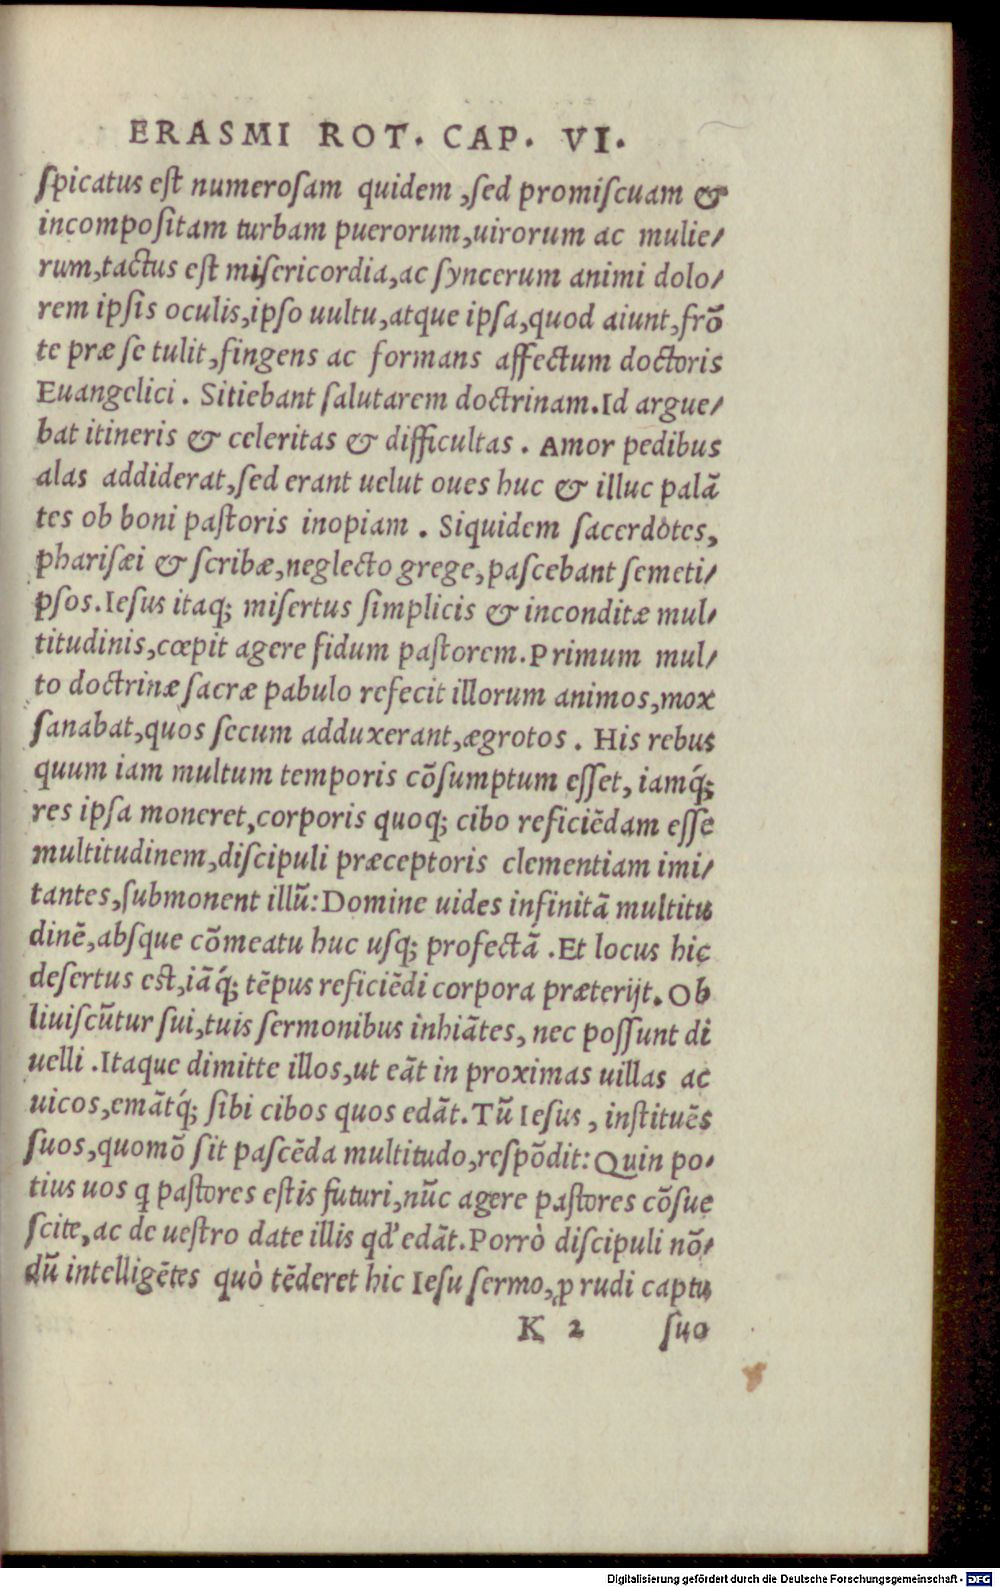 ERASMI ROT. CAP. VI.
spicatus est numerosam quidem, sed promiscuam &
incompositam turbam puerorum, uirorum ac mulie/
rum, tactus est misericordia, ac syncerum animi dolo/
rem ipsis oculis, ipso uultu, atque ipsa, quod aiunt, frõ
te præ se tulit, fingens ac formans affectum doctoris
Euangelici. Sitiebant salutarem doctrinam. Id argue/
bat itineris & celeritas & difficultas. Amor pedibus
alas addiderat, sed erant uelut oues huc & illuc palã
tes ob boni pastoris inopiam. Siquidem sacerdòtes,
pharisæi & scribæ, neglecto grege, pascebant semeti/
psos. Iesus itaq; misertus simplicis & inconditæ mul/
titudinis, cœpit agere fidum pastorem. Primum mul/
to doctrinæ sacræ pabulo refecit illorum animos, mox
sanabat, quos secum adduxerant, ægrotos. His rebus
quum iam multum temporis cõsumptum esset, iamq́;
res ipsa moneret, corporis quoq; cibo reficiẽdam esse
multitudinem, discipuli præceptoris clementiam imi/
tantes, submonent illũ: Domine uides infinitã multitu
dinẽ, absque cõmeatu huc usq; profectã. Et locus hic
desertus est, iãq́; tẽpus reficiẽdi corpora præterijt. Ob
liuiscũtur sui, tuis sermonibus inhiãtes, nec possunt di
uelli. Itaque dimitte illos, ut eãt in proximas uillas ac
uicos, emãtq́; sibi cibos quos edãt. Tũ Iesus, instituẽs
suos, quomõ sit pascẽda multitudo, respõdit: Quin po/
tius uos q pastores estis futuri, nũc agere pastores cõsue
scite, ac de uestro date illis qd' edãt. Porrò discipuli nõ/
dũ intelligẽtes quò tẽderet hic Iesu sermo, ꝓ rudi captu
K 2 suo
Digitalisierung gefördert durch die Deutsche Forschungsgemeinschaft - DFG